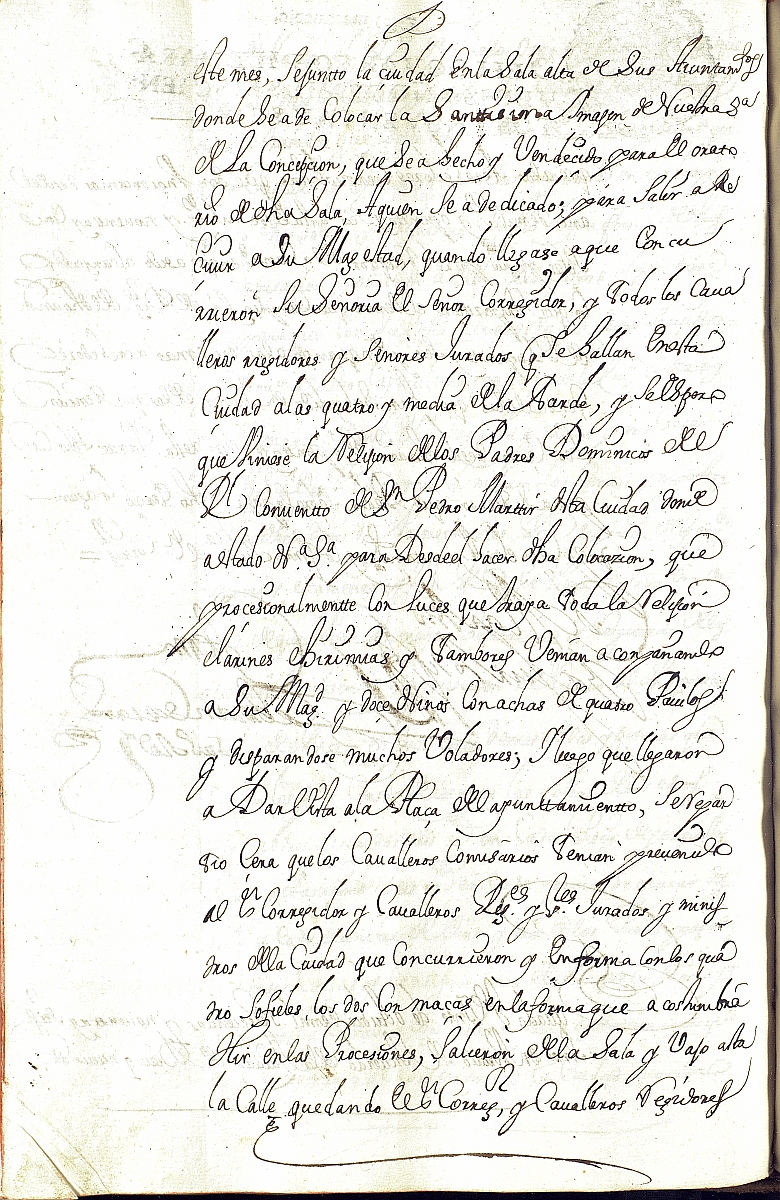 este mes, se juntto la ciudad en la sala alta de sus Aiuntamtos
donde se a de Colocar la Santtissima Imajen de Nuestra Sa
de La Concepcion, que se a hecho y Vendecido para el orato
rio de dha Sala, A quien se a dedicado; para Salir a Re
civir a Su Magestad, quando llegase a que Concu
rrieron Su Señoria el Señor Corregidor, y todos los Cava
lleros rregidores y Señores Jurados q se hallan en esta
Ciudad a las quatro y media de la tarde, y se espero
que Viniese la Relijion de los Padres Dominicos del
Rl Conventto de Sn Pedro Marttir desta Ciudad donde
a estado Na Sa para desde el hacer dha Colocazion, que
procesionalmentte con luces que traya toda la Relijion
clarines chirimias y tambores Venian aconpañando
a Su Magd y doce Niños con achas de quatro Pavilos
y disparandose muchos Voladores; I luego que llegaron
a Dar Vista a la Plaça del ayunttamientto, se repar
tio Cera que los Cavalleros Comisarios tenian prevenido
al Sr Corregidor y Cavalleros Reges y Sres Jurados y minis
tros de la Ciudad que Concurrieron y en forma con los qua
tro sofieles los dos con maças en la forma que acostumbra
Hir en las Procesiones, Salieron de la Sala y Vajo asta
la Calle quedando el Sr Correxr, y Cavalleros Regidores